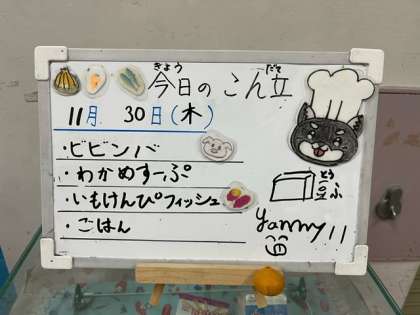 今日のこん立
きょう だて
11月 30日(木)
・ビビンバ
・わかめすーぷ
・いもけんぴフィッシュ
・ごはん
とう
豆ふ
yammy!!